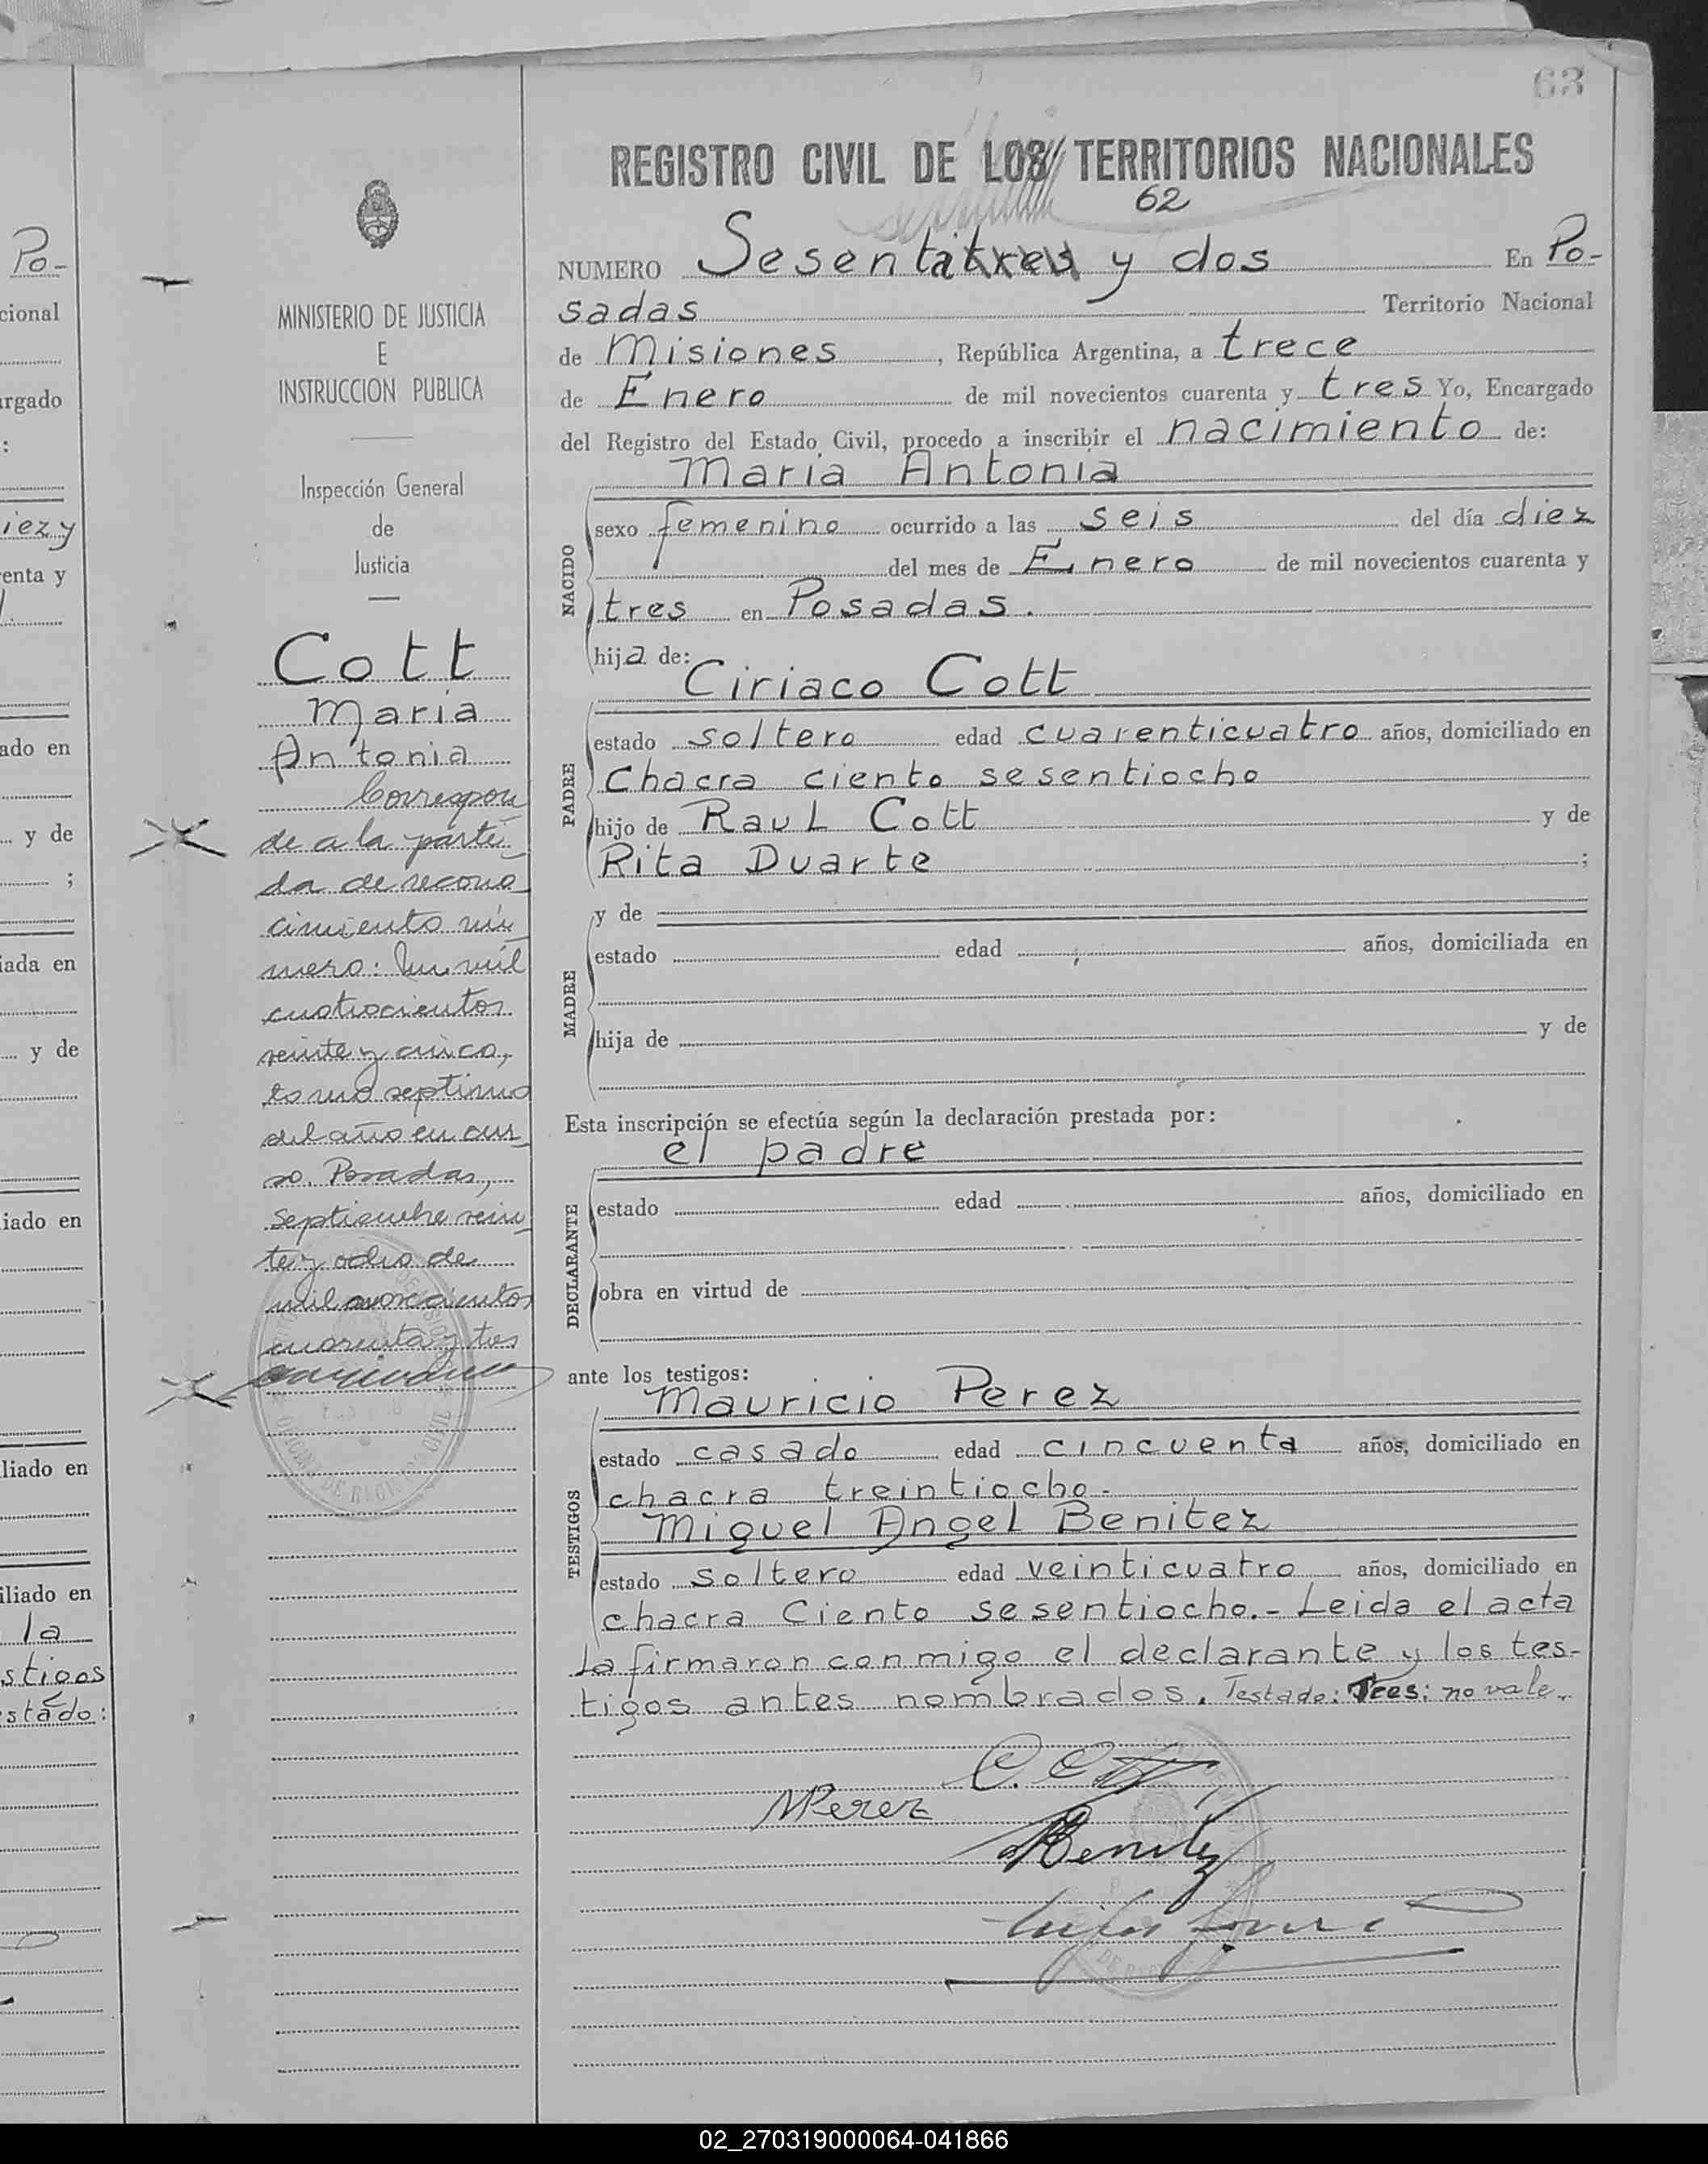 63
REGISTRO CIVIL DE LOS TERRITORIOS NACIONALES
62
NUMERO Sesentitres y dos En Po-
sadas Territorio Nacional
de Misiones, República Argentina, a trece
de Enero de mil novecientos cuarenta y tres Yo, Encargado
del Registro del Estado Civil, procedo a inscribir el nacimiento de:
Maria Antonia
NACIDO
sexo femenino ocurrido a las seis del día diez
del mes de Enero de mil novecientos cuarenta y
tres en Posadas.
hija de:
Ciriaco Cott
PADRE
estado soltero edad cuarenticuatro años, domiciliado en
Chacra ciento sesentiocho
hijo de Raul Cott y de
Rita Duarte ;
MADRE
y de
estado edad años, domiciliada en
hija de y de
Esta inscripción se efectúa según la declaración prestada por:
el padre
DECLARANTE
estado edad años, domiciliado en
obra en virtud de
ante los testigos:
Mauricio Perez
TESTIGOS
estado casado edad cincuenta años, domiciliado en
chacra treintiocho.
Miguel Angel Benitez
estado soltero edad veinticuatro años, domiciliado en
chacra Ciento sesentiocho.- Leida el acta
la firmaron conmigo el declarante y los tes-
tigos antes nombrados. Testado: Tres: no vale.
C. Cott
MPerez
Benitez
MINISTERIO DE JUSTICIA
E
INSTRUCCION PUBLICA
Inspección General
de
Justicia
Cott
Maria
Antonia
Correspon
de a la parti-
da de recono-
cimiento nú-
mero: Un mil
cuatrocientos
veinte y cinco,
tomo septimo
del año en cur-
so. Posadas,
Septiembre vein-
te y ocho de
mil novecientos
cuarenta y tres
Po-
cional
argado
:
iez y
enta y
ado en
y de
;
iada en
y de
iado en
liado en
iliado en
la
stigos
stado:
02_270319000064-041866